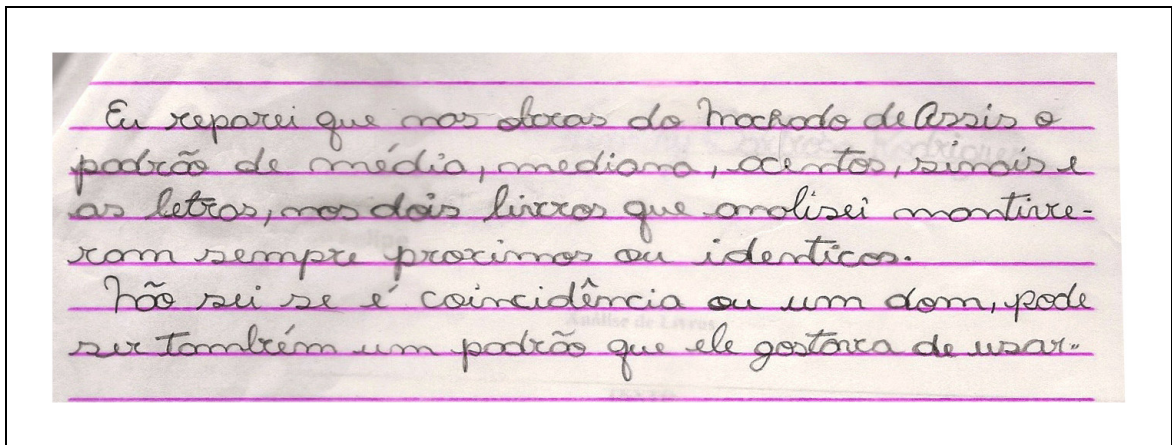 Eu reparei que nas obras do Machado de Assis o
padrão de média, mediana, acentos, sinais e
as letras, nos dois livros que analisei mantive-
ram sempre proximos ou identicos.
Não sei se é coincidência ou um dom, pode
ser também um padrão que ele gostava de usar..
Análise de Livros